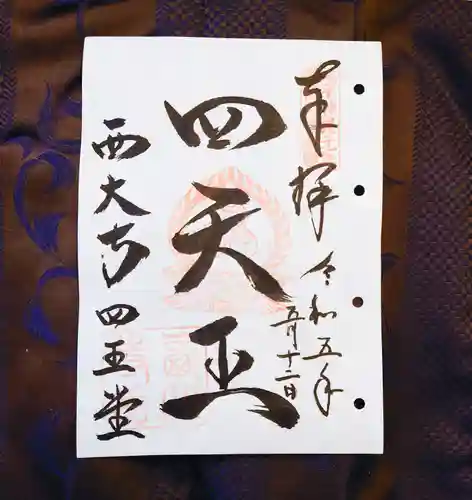 奉拝
令和五年
五月十二日
四天王
西大寺四王堂